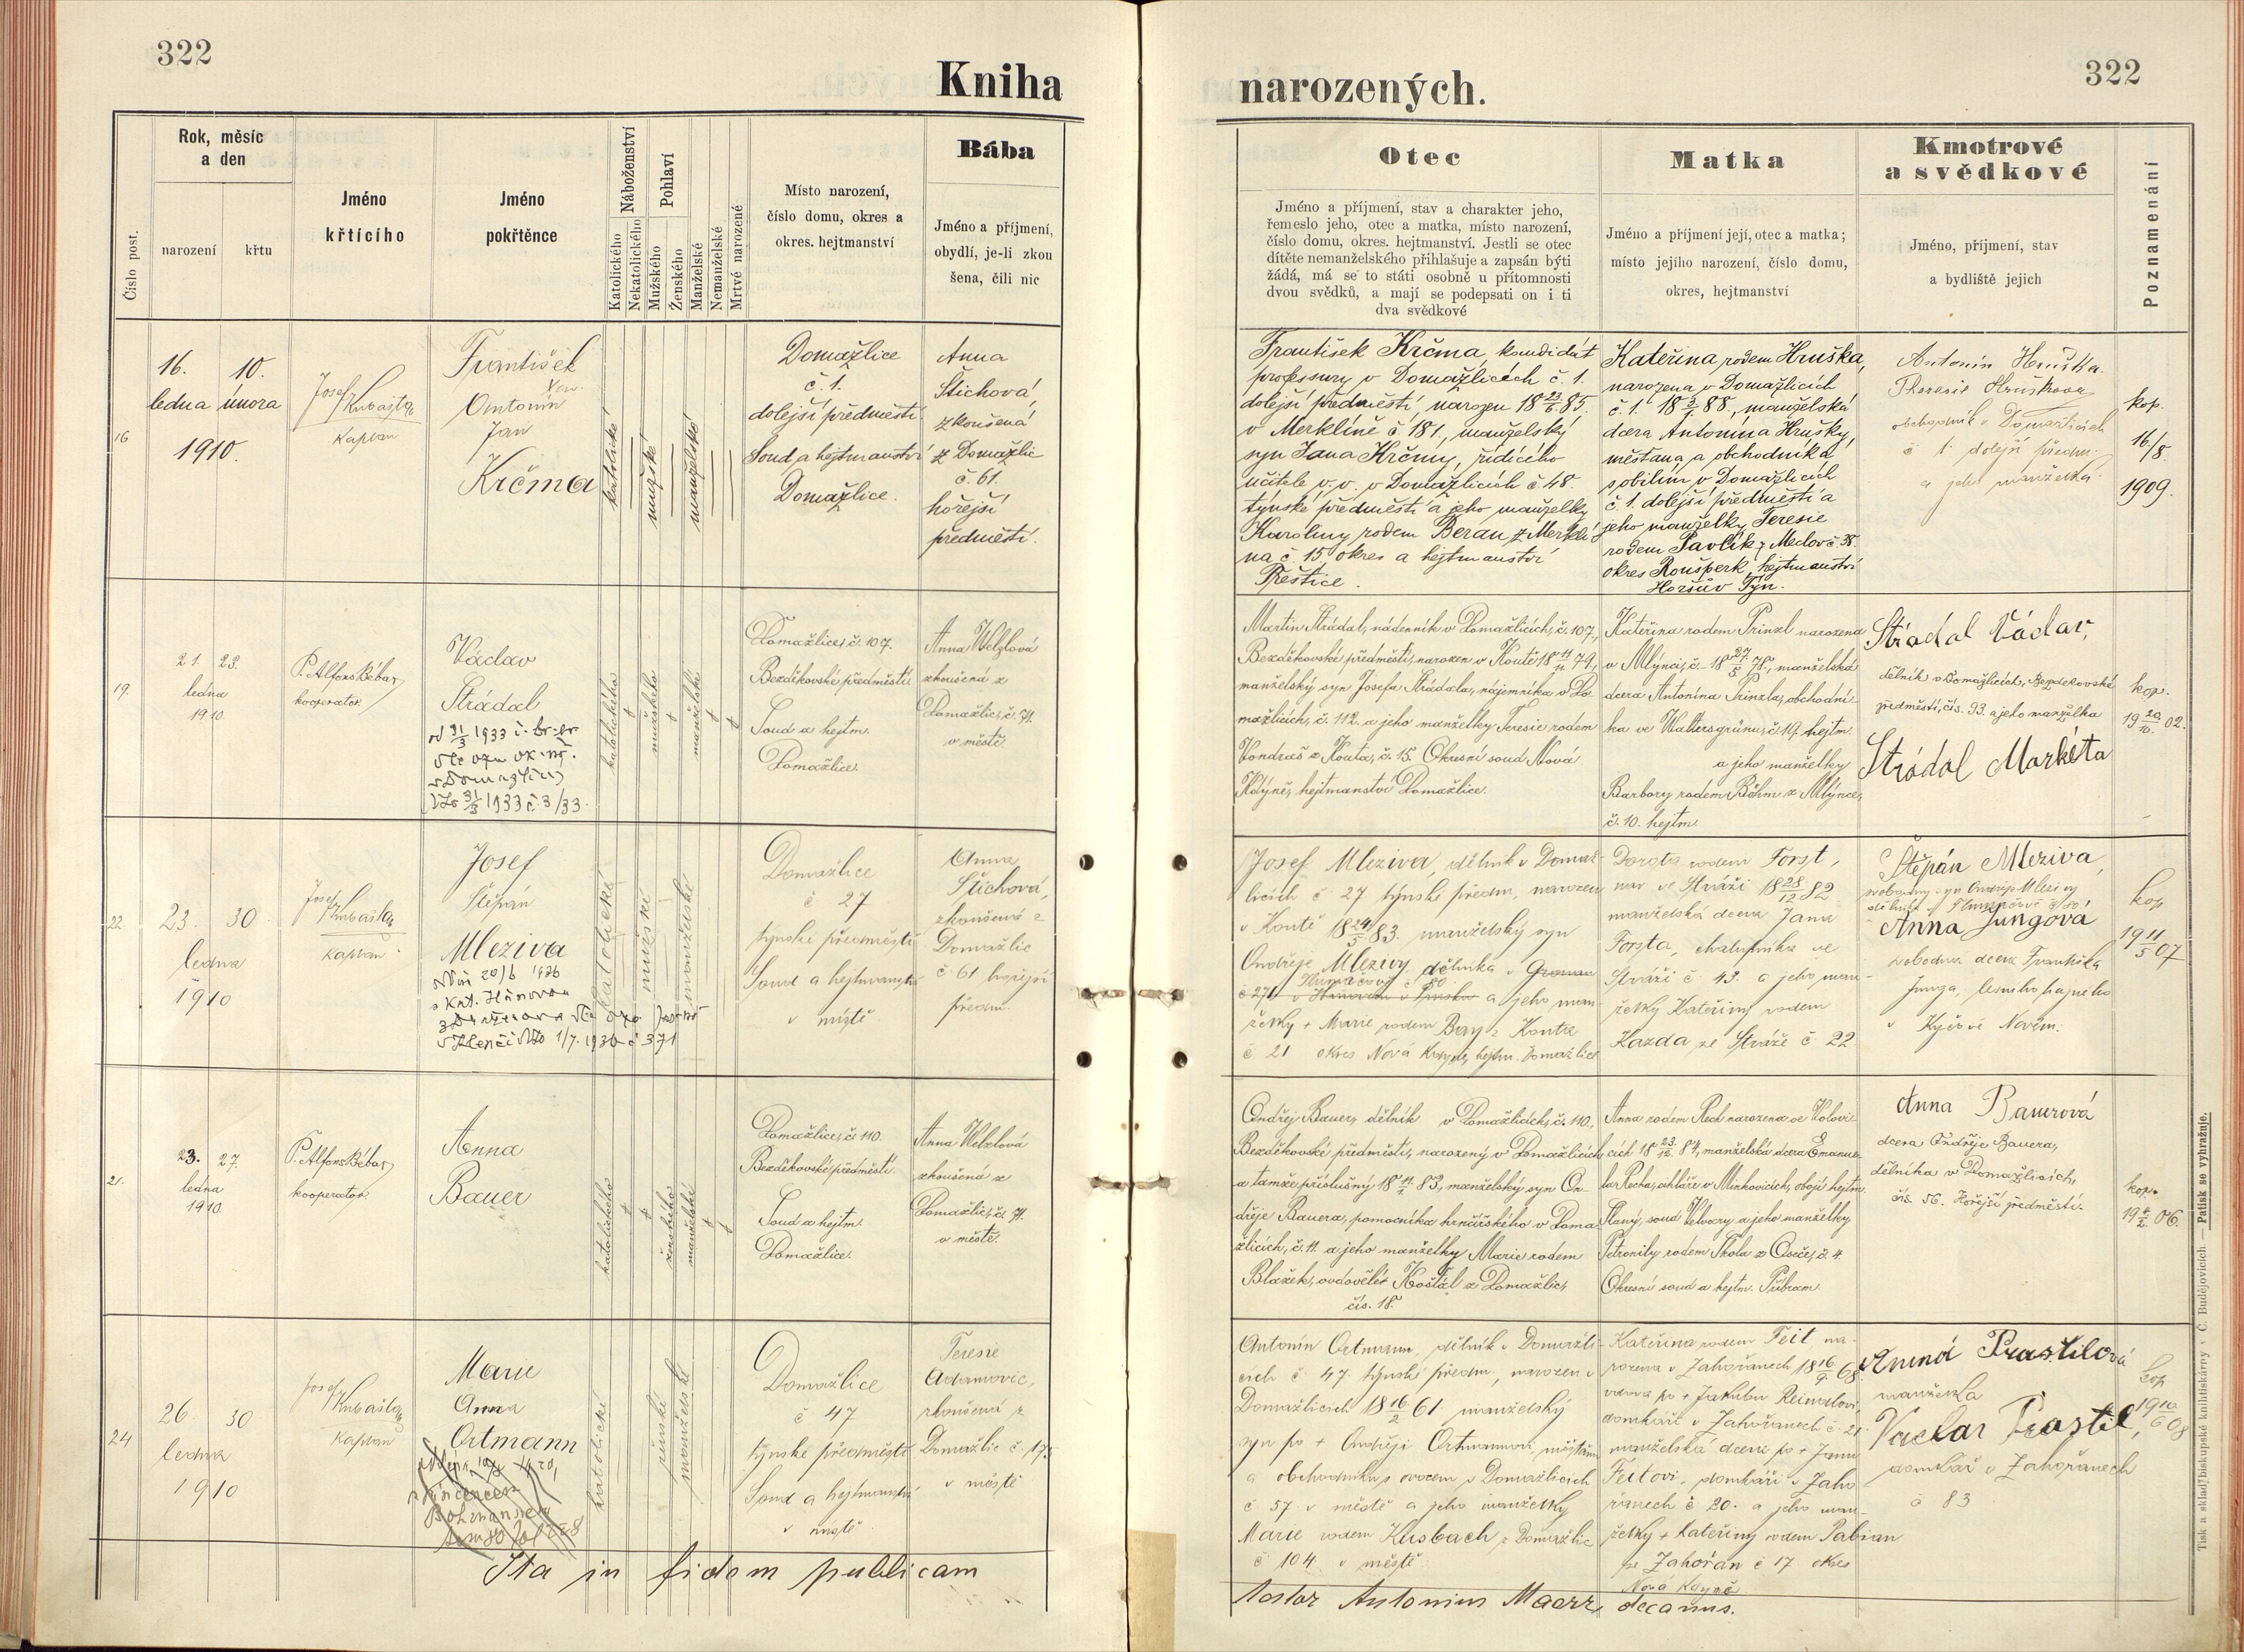 322
Kniha
narozených.
322
Číslo post.
Rok, měsíc
a den
narození
křtu
Jméno
křtícího
Jméno
pokřtěnce
Náboženství
Katolického
Nekatolického
Pohlaví
Mužského
Ženského
Manželské
Nemanželské
Mrtvě narozené
Místo narození,
číslo domu, okres a
okres. hejtmanství
Bába
Jméno a příjmení,
obydlí, je-li zkou
šena, čili nic
Otec
Jméno a příjmení, stav a charakter jeho,
řemeslo jeho, otec a matka, místo narození,
číslo domu, okres. hejtmanství. Jestli se otec
dítěte nemanželského přihlašuje a zapsán býti
žádá, má se to státi osobně u přítomnosti
dvou svědků, a mají se podepsati on i ti
dva svědkové
Matka
Jméno a příjmení její, otec a matka;
místo jejího narození, číslo domu,
okres, hejtmanství
Kmotrové
a svědkové
Jméno, příjmení, stav
a bydliště jejich
Poznamenání
16
16. 10.
ledna února
1910.
Josef
Kubašta
Kaplan
František
Antonín
Jan
Krčma
katolické
mužské
manželské
Domažlice
č. 1.
dolejší předměstí
Soud a hejtmanství
Domažlice.
Anna
Štichová,
zkoušená
z Domažlic
č. 61.
hořejší
předměstí.
František Krčma, kandidát
professury v Domažlicích č. 1.
dolejší předměstí, narozen 18 23/6. 85.
v Merklíně č 181., manželský
syn Jana Krčmy, řídícího
učitele v. v. v Domažlicích č 48.
týnské předměstí a jeho manželky
Karoliny rodem Beran z Merklí
na č 15 okres a hejtmanství
Přeštice.
Kateřina rodem Hruška,
narozena v Domažlicích
č. 1. 18 3/1. 88., manželská
dcera Antonína Hrušky,
měšťana a obchodníka
s obilím v Domažlicích
č. 1. dolejší předměstí a
jeho manželky Teresie
rodem Pavlík z Medov č. 38.
okres Roušperk, hejtmanství
Horšův Týn.
Antonín Hruška.
Theresie Hrušková
obchodník v Domažlicích
č 1. dolejší předm.
a jeho manželka.
kop.
16./8.
1909.
19.
21. 23.
ledna
1910.
P. Alfons Bébar,
kooperator.
Václav
Strádal
od 31/3 1933 č. br. ev.
dle ozn ok. úř.
v Domažlicích
31/3 1933 č. 3/33.
katolického
mužského
manželské
Domažlice, č. 107.
Bezděkovské předměstí
Soud a hejtm.
Domažlice.
Anna Welzlová
zkoušená z
Domažlic, č. 71.
v městě.
Martin Strádal, nádenník v Domažlicích, č. 107.,
Bezděkovské předměstí, narozen v Koutě 18 11/11 79.,
manželský syn Josefa Strádala, nájemníka v Do-
mažlicích, č. 112. a jeho manželky Teresie rodem
Vondraš z Kouta, č. 15. Okresní soud Nová
Kdýně, hejtmanství Domažlice.
Kateřina rodem Prinzl narozena
v Mlýnci, č. – 18 27/5 78., manželská
dcera Antonína Prinzla, obchodní-
ka ve Waltersgrünu, č. 19. hejtm.
a jeho manželky
Barbory rodem Böhm z Mlýnce,
č. 10. hejtm.
Strádal Václav,
dělník v Domažlicích, Bezdekovské
předměstí, čís. 93. a jeho manželka
Strádal Markéta
kop.
19 20/10. 02.
22.
23. 30.
ledna
1910
Josef
Kubašta
kaplan
Josef
Štěpán
Mleziva
20/6 1936
s Kat.
1/7. 1936 č 371
katolické
mužské
manželské
Domažlice
č 27
týnské předměstí
Soud a hejtmanství
v místě
Anna
Štichová,
zkoušená z
Domažlic
č 61 hořejší
předm.
Josef Mleziva, dělník v Domaž-
licích č 27 týnské předm, narozen
v Koutě 18 24/5 83. manželský syn
Ondřeje Mlezivy dělníka v
č 271 a jeho man-
želky + Marie rodem Bay z Kouta
č 21 okres Nová Kdyně, hejtm. Domažlice
Dorota rodem Forst,
nar ve Stráži 18 28/12 82
manželská dcera Jana
Forsta, chalupníka ve
Stráži č 43. a jeho man-
želky Kateřiny rodem
Kazda ze Stráže č 22
Štěpán Mleziva,
svobodný syn Ondřeje Mlezivy
Anna Jungová
svobodná dcera Františka
Junga, lesního hajného
v Kyčově Novém.
kop
19 11/5 07
21.
23. 27.
ledna
1910.
P. Alfons Bébar,
kooperator.
Anna
Bauer
katolického
ženského
manželské
Domažlice, č. 110.
Bezděkovské předměstí.
Soud a hejtm.
Domažlice.
Anna Welzlová
zkoušená z
Domažlic, č. 71.
v městě.
Ondřej Bauer, dělník v Domažlicích, č. 110.,
Bezděkovské předměstí, narozený v Domažlicích
a tamže příslušný 18 11/2. 83., manželský syn On-
dřeje Bauera, pomocníka hrnčířského v Doma-
žlicích, č. 11. a jeho manželky Marie rodem
Blažek, ovdovělé Košťál z Domažlic,
čís. 18.
Anna rodem Rech narozena ve Volovi-
cích 18 23/12. 84., manželská dcera Emanue-
la Recha, cihláře v Minkovicích, obojí hejtm.
Slaný, soud Velvary a jeho manželky
Petronily rodem Škola z Oseče, č. 4.
Okresní soud a hejtm. Příbram.
Anna Bauerová
dcera Ondřeje Bauera,
dělníka v Domažlicích,
čís. 56. Hořejší předměstí.
kop.
19 4/2. 06.
24
26 30
ledna
1910
Josef
Kubašta
Kaplan
Marie
Anna
Ortmann
s Vincencem
Bohmannem
katolické
ženské
manželské
Domažlice
č 47
týnské předměstí
Soud a hejtmanství
v místě
Teresie
Adamovic,
zkoušená z
Domažlic č. 175
v městě
Antonín Ortmann, dělník v Domažli-
cích č 47 týnské předm, narozen v
Domažlicích 18 16/2 61 manželský
syn po + Ondřeji Ortmannovi, měšťanu
a obchodníku s ovocem v Domažlicích
č 57 v městě a jeho manželky
Marie rodem Kusbach z Domažlic
č 104 v městě
Kateřina rodem Feit na-
rozena v Zahořanech 18 16/9 68,
vdova po + Jakubu Reinwaldovi,
domkáři v Zahořanech č. 21
manželská dcera po + Janu
Feitovi, domkáři v Zaho
řanech č 20. a jeho man-
želky + Kateřiny rodem Pabian
ze Zahořan č 17 okres
Nová Kdyně
Anna Prastilová
manželka
Vaclav Prastil,
domkář v Zahořanech
č 83
kop
Ita in fidem publicam
testor Antonius Maerz decanus.
Tisk a sklad biskupské knihtiskárny v Č. Budějovicích. — Patisk se vyhražuje.